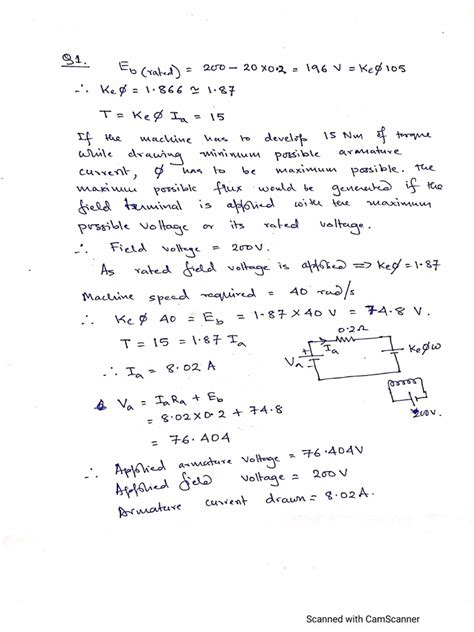 Q1.
Eb (rated) = 200 - 20×0.2 = 196 V = Keφ 105
∴ Keφ = 1.866 ≃ 1.87
T = Keφ Ia = 15
If the machine has to develop 15 Nm of torque
while drawing minimum possible armature
current, φ has to be maximum possible. The
maximum possible flux would be generated if the
field terminal is applied with the maximum
possible voltage or its rated voltage.
∴ Field voltage = 200V.
As rated field voltage is applied ⇒ Keφ = 1.87
Machine speed required = 40 rad/s
∴ Keφ 40 = Eb = 1.87 × 40 V = 74.8 V.
T = 15 = 1.87 Ia
∴ Ia = 8.02 A
0.2Ω
Ia
+
Va
-
Keφω
200V.
Va = IaRa + Eb
= 8.02×0.2 + 74.8
= 76.404
∴ Applied armature voltage = 76.404V
Applied field voltage = 200V
Armature current drawn = 8.02A.
Scanned with CamScanner